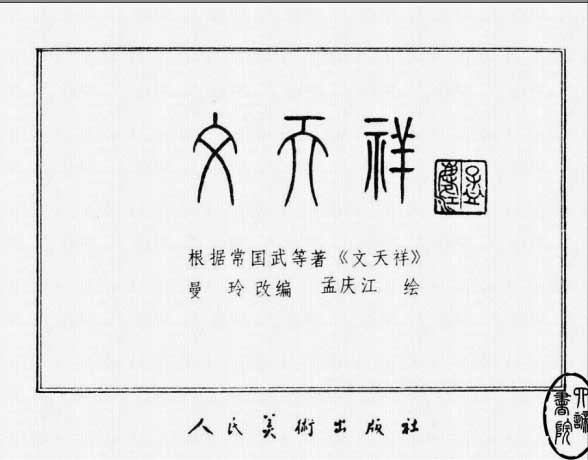 文天祥
根据常国武等著《文天祥》
曼 玲改编 孟庆江 绘
人民美術出版社
書院